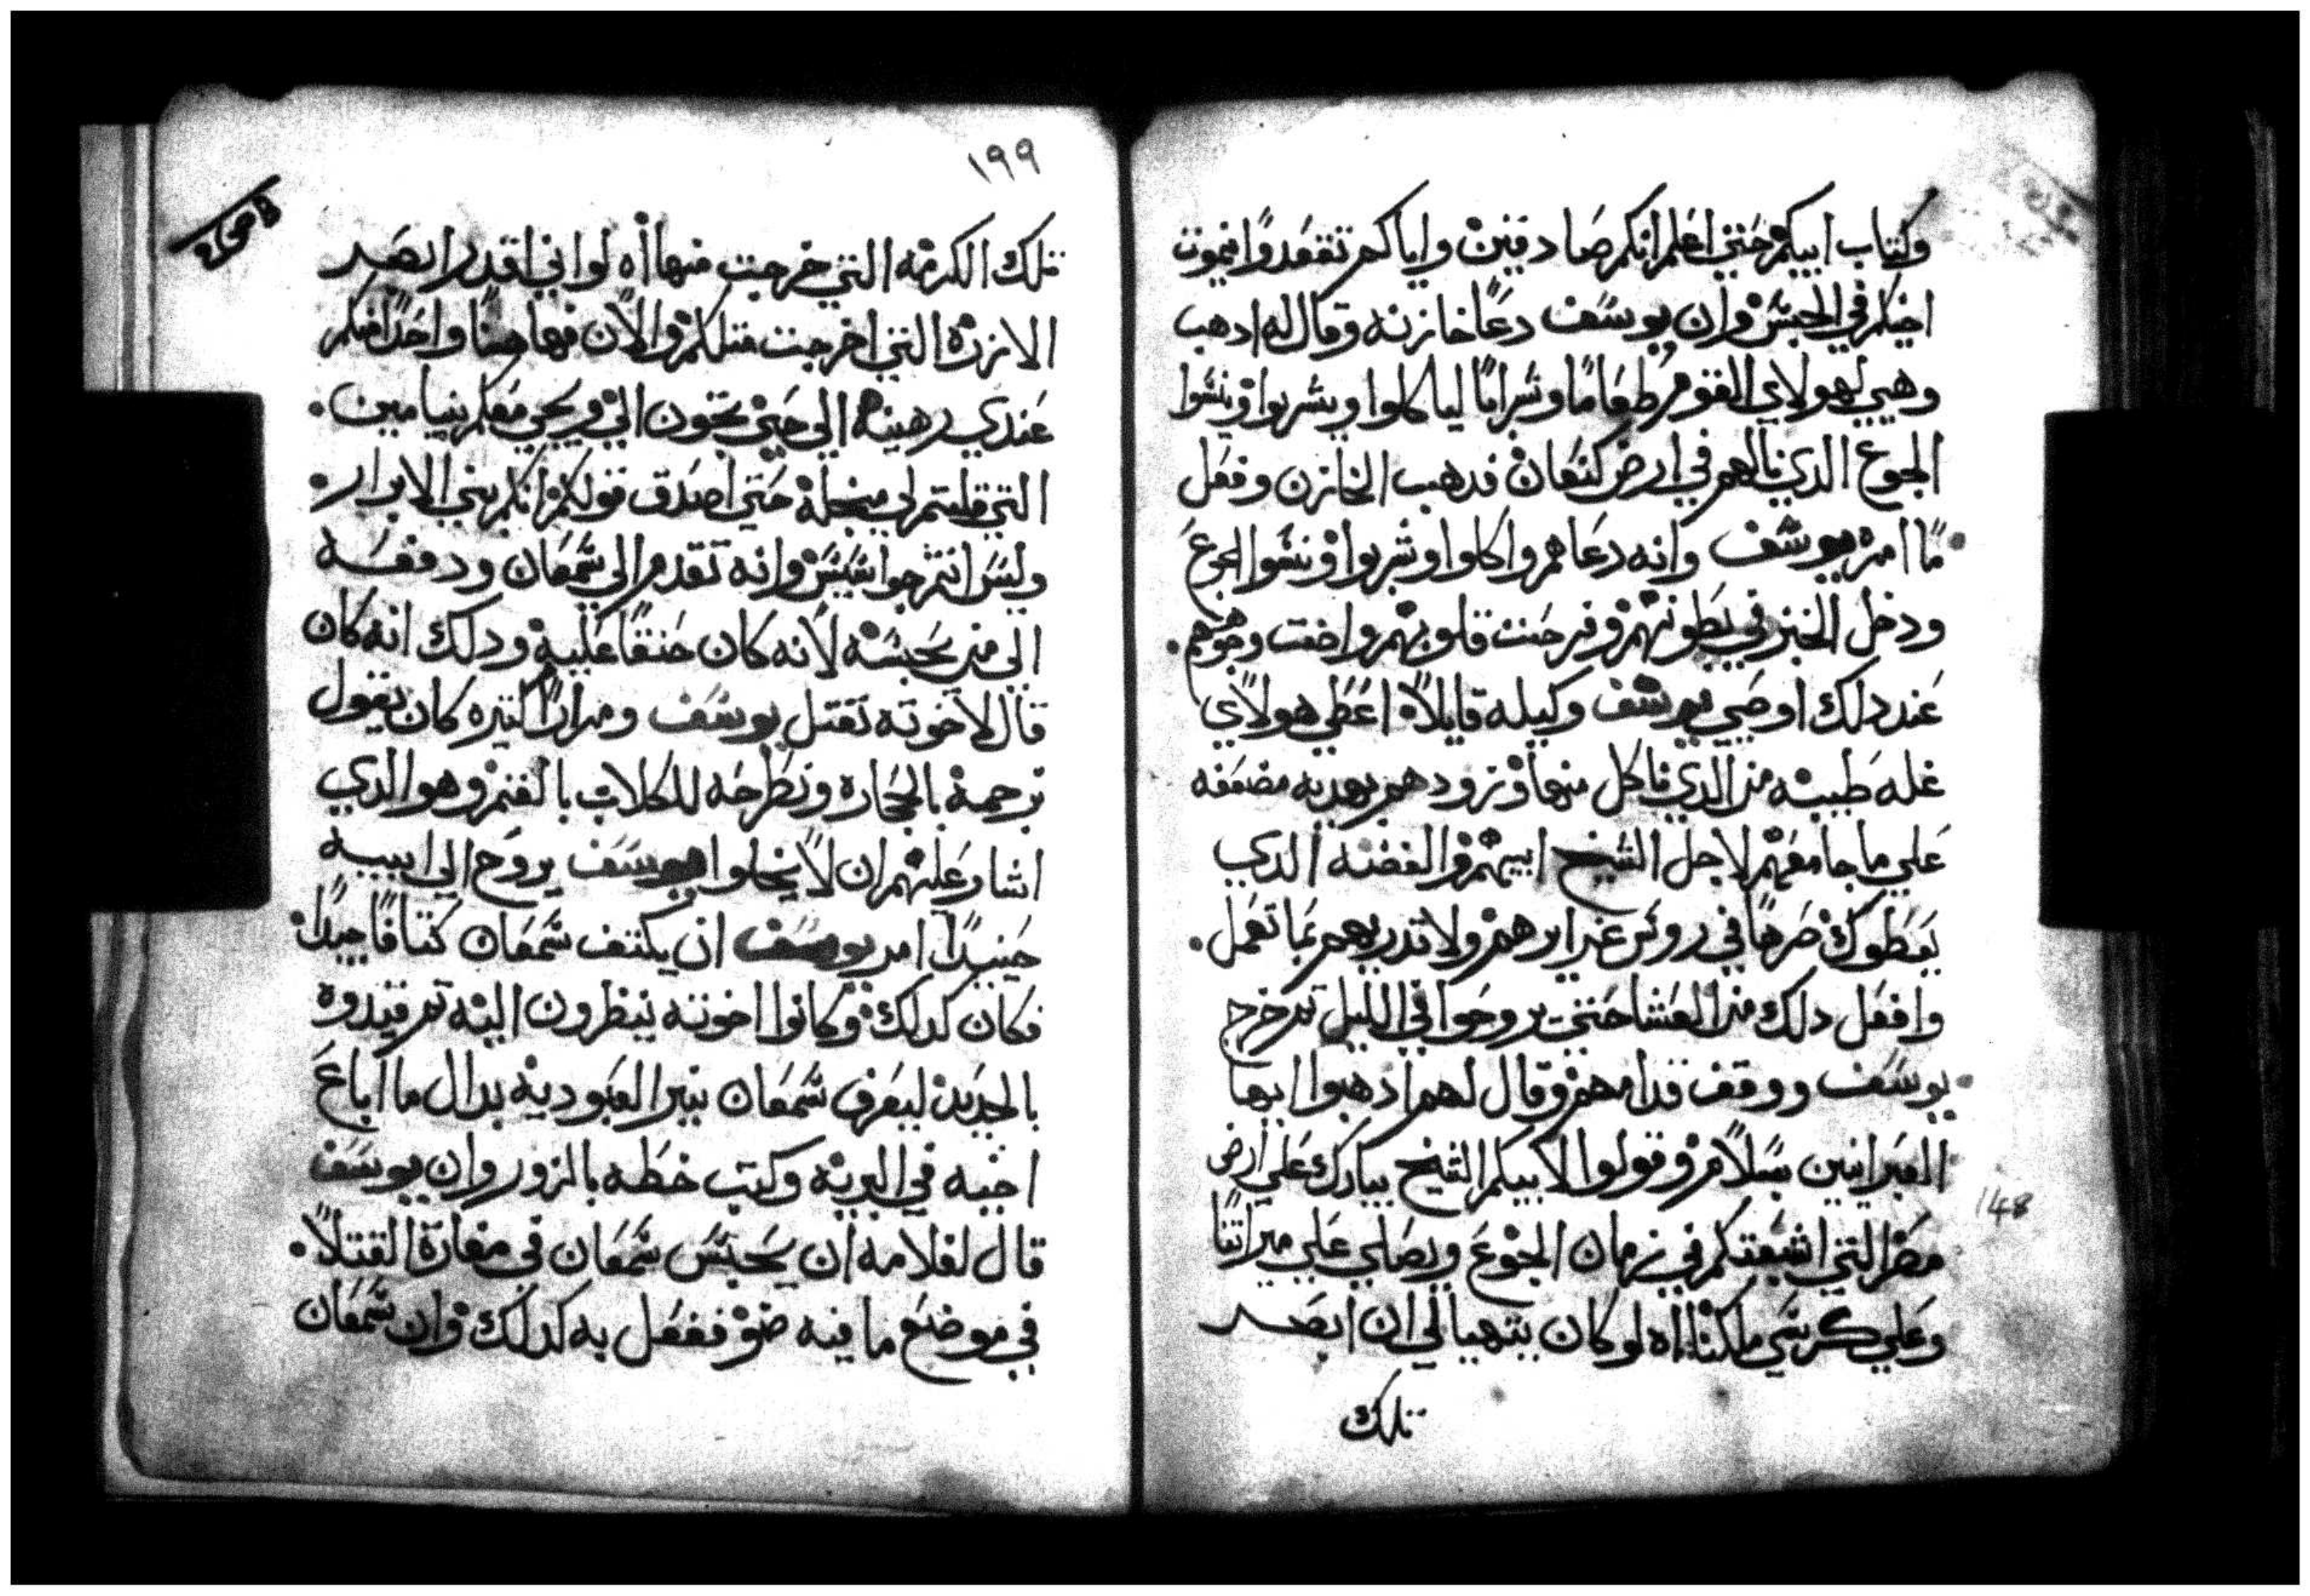 وكتاب ابيكم حتي اعلم انكم صادقين واياكم تقعدوا فيموت
اخيكم في الحبس وان يوسف دعا خازنه وقال له ادهب
وهيي لهولاي القوم طعاما وشرابا لياكلوا ويشربوا وينسوا
الجوع الدي نالهم في ارض كنعان فدهب الخازن وفعل
ما امره يوسف وانه دعاهم واكلوا وشربوا ونسوا الجوع
ودخل الخبز في بطونهم وفرحت قلوبهم واضت وجوههم.
عند دلك اوصي يوسف وكيله قايلا اعطي هولاي
غله طيبه من الدي ناكل منها وزودهم بهديه مضعفه
علي ما جا معهم لاجل الشيخ ابيهم والفضه الدي
يعطوك صرها في روس غرايرهم ولا تدريهم بما تعمل.
وافعل دلك من العشا حتي يروحوا في الليل تم خرج
يوسف ووقف قدامهم وقال لهم ادهبوا ايها
العبرانيين بسلام وقولوا لابيكم الشيخ يبارك علي ارض
مصر التي اشبعتكم في زمان الجوع ويصلي علي ميراتنا
وعلي كرسي ملكنا اه لو كان يتهيا لي ان ابصر
تلك
148
١٩٩
تلك الكرمه التي خرجت منها اه لو اني اقدر ابصر
الارزه التي اخرجت متلكم والان فها هنا واحدا منكم
عندي رهينه الي حتي تجون الي ويجي معكم بنيامين.
التي قلتم لي من جله حتي اصدق قولكم انكم بني الابرار.
وليس انتم جواسيس وانه تقدم الي شمعان ودفعه
الي من يحبسه لانه كان حنقا عليه ودلك انه كان
قال لاخوته نقتل يوسف ومرارا كتيره كان يقول
نرجمه بالحجاره ونطرحه للكلاب بالغنم وهو الدي
اشار عليهم ان لا يخلوا يوسف يروح الي ابيه
حينيدا امر يوسف ان يكتف شمعان كتافا جيدا.
فكان كدلك وكانوا اخوته ينظرون اليه تم قيدوه
بالحديد ليعرف شمعان نير العبوديه بدال ما اباع
اخيه في البريه وكتب خطه بالزور وان يوسف
قال لغلامه ان يحبس شمعان في مغارة القتلا.
في موضع ما فيه ضو ففعل به كدلك وان شمعان